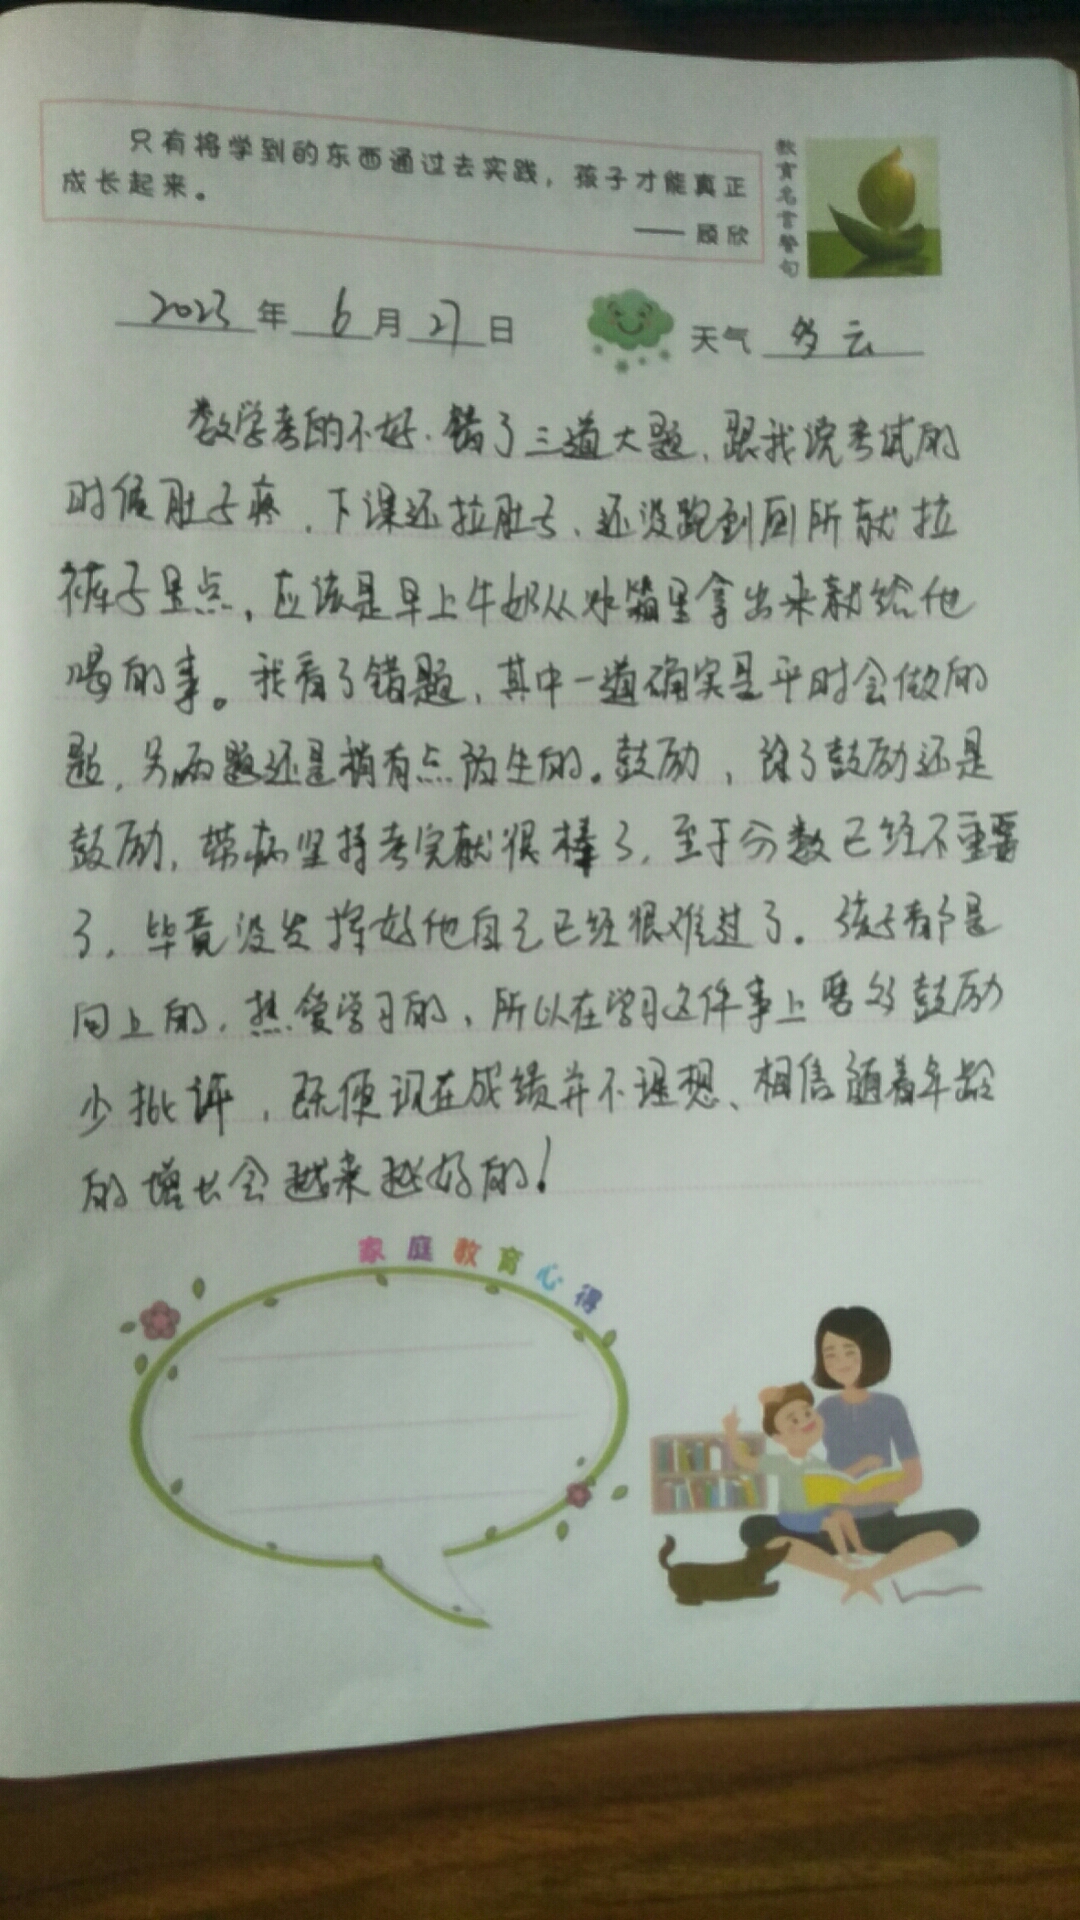 只有将学到的东西通过去实践，孩子才能真正
成长起来。
—— 顾欣
教育名言警句
2023年6月27日 天气 多云
数学考的不好，错了三道大题，跟我说考试的
时候肚子疼，下课还拉肚子，还没跑到厕所就拉
裤子里点，应该是早上牛奶从冰箱里拿出来就给他
喝的事。我看了错题，其中一道确实是平时会做的
题，另两题还是稍有点陌生的。鼓励，除了鼓励还是
鼓励，带病坚持考完就很棒了，至于分数已经不重要
了，毕竟没发挥好他自己已经很难过了。孩子都是
向上的，热爱学习的，所以在学习这件事上要多鼓励
少批评，既便现在成绩并不理想、相信随着年龄
的增长会越来越好的！
家庭教育心得